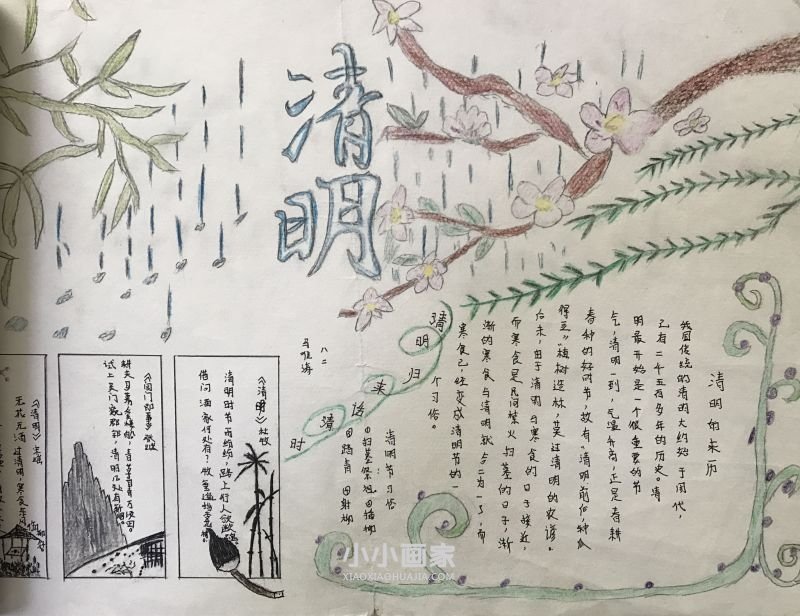 清明
清明的来历
我国传统的清明大约始于周代，
已有二千五百多年的历史。清
明最开始是一个很重要的节
气，清明一到，气温升高，正是春耕
春种的好时节，故有“清明前后，种瓜
得豆”“植树造林，莫过清明的农谚。
后来，由于清明与寒食的日子接近，
而寒食是民间禁火扫墓的日子，渐
渐的寒食与清明就合二为一了，而
寒食已
变成清明节的一
个习俗。
清明归来话清时
清明节习俗
扫墓祭祖
插柳
踏青
射柳
八二
《清明》杜牧
清明时节雨纷纷，路上行人欲断魂
借问酒家何处有？牧童遥指杏花村
试上吴门窥郡郭，清明几处有新烟。
《清明》王禹
无花无酒过清明，
小小画家
XIAOXIAOHUAJIA.COM